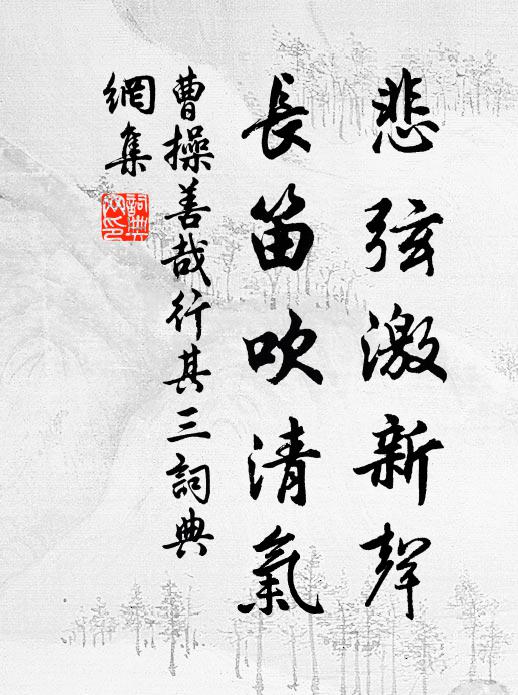 悲弦激新聲
長笛吹清氣
曹操善哉行其三詞典
網集
詞典網印